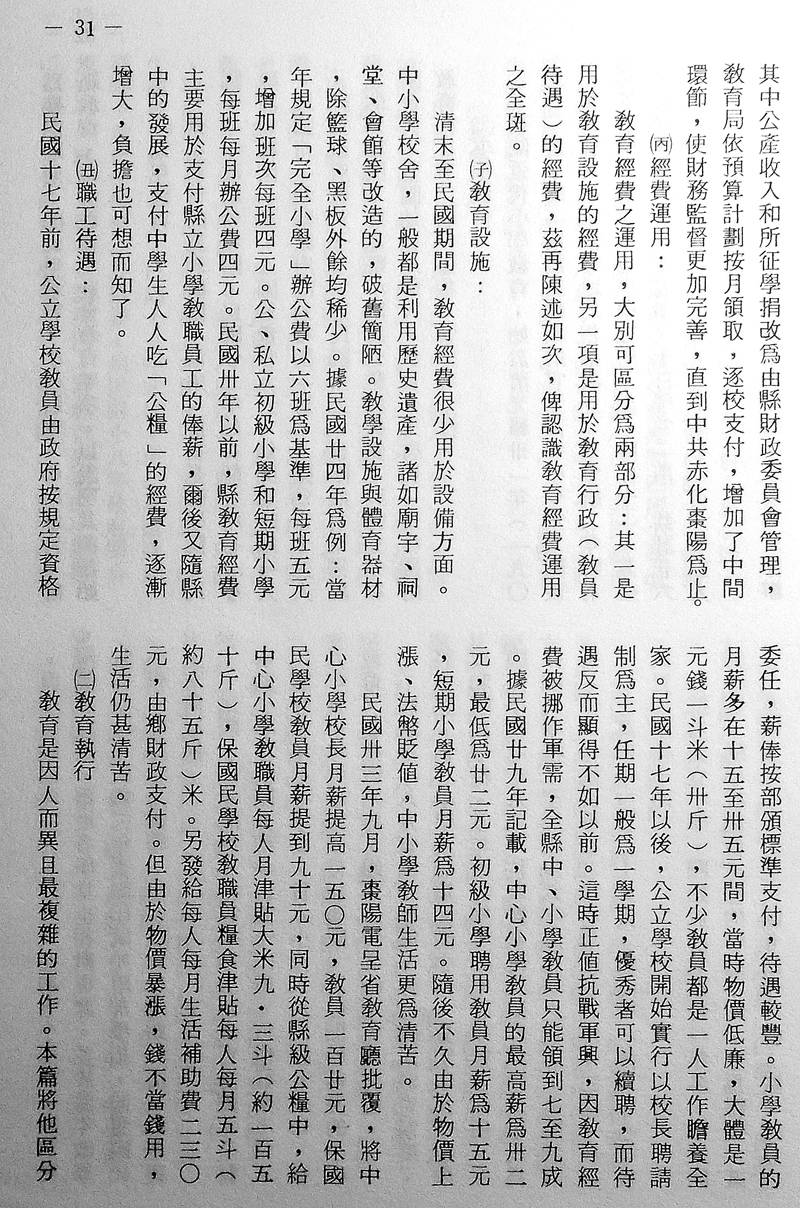 — 31 —
其中公產收入和所征學捐改為由縣財政委員會管理，
教育局依預算計劃按月領取，逐校支付，增加了中間
環節，使財務監督更加完善，直到中共赤化棗陽為止。
㈣經費運用：
教育經費之運用，大別可區分為兩部分：其一是
用於教育設施的經費，另一項是用於教育行政（教員
待遇）的經費，茲再陳述如次，俾認識教育經費運用
之全斑。
(子)教育設施：
清末至民國期間，教育經費很少用於設備方面。
中小學校舍，一般都是利用歷史遺產，諸如廟宇、祠
堂、會館等改造的，破舊簡陋。教學設施與體育器材
，除籃球、黑板外餘均稀少。據民國廿四年為例：當
年規定「完全小學」辦公費以六班為基準，每班五元
，增加班次每班四元。公、私立初級小學和短期小學
，每班每月辦公費四元。民國卅年以前，縣教育經費
主要用於支付縣立小學教職員工的俸薪，爾後又隨縣
中的發展，支付中學生人人吃「公糧」的經費，逐漸
增大，負擔也可想而知了。
(丑)職工待遇：
民國十七年前，公立學校教員由政府按規定資格
委任，薪俸按部頒標準支付，待遇較豐。小學教員的
月薪多在十五至卅五元間，當時物價低廉，大體是一
元錢一斗米（卅斤），不少教員都是一人工作瞻養全
家。民國十七年以後，公立學校開始實行以校長聘請
制為主，任期一般為一學期，優秀者可以續聘，而待
遇反而顯得不如以前。這時正值抗戰軍興，因教育經
費被挪作軍需，全縣中、小學教員只能領到七至九成
。據民國廿九年記載，中心小學教員的最高薪為卅二
元，最低為廿二元。初級小學聘用教員月薪為十五元
，短期小學教員月薪為十四元。隨後不久由於物價上
漲、法幣貶值，中小學教師生活更為清苦。
民國卅三年九月，棗陽電呈省教育廳批覆，將中
心小學校長月薪提高一五〇元，教員一百廿元，保國
民學校教員月薪提到九十元，同時從縣級公糧中，給
中心小學教職員每人月津貼大米九·三斗（約一百五
十斤），保國民學校教職員糧食津貼每人每月五斗（
約八十五斤）米。另發給每人每月生活補助費二三〇
元，由鄉財政支付。但由於物價暴漲，錢不當錢用，
生活仍甚清苦。
㈡教育執行
教育是因人而異且最複雜的工作。本篇將他區分